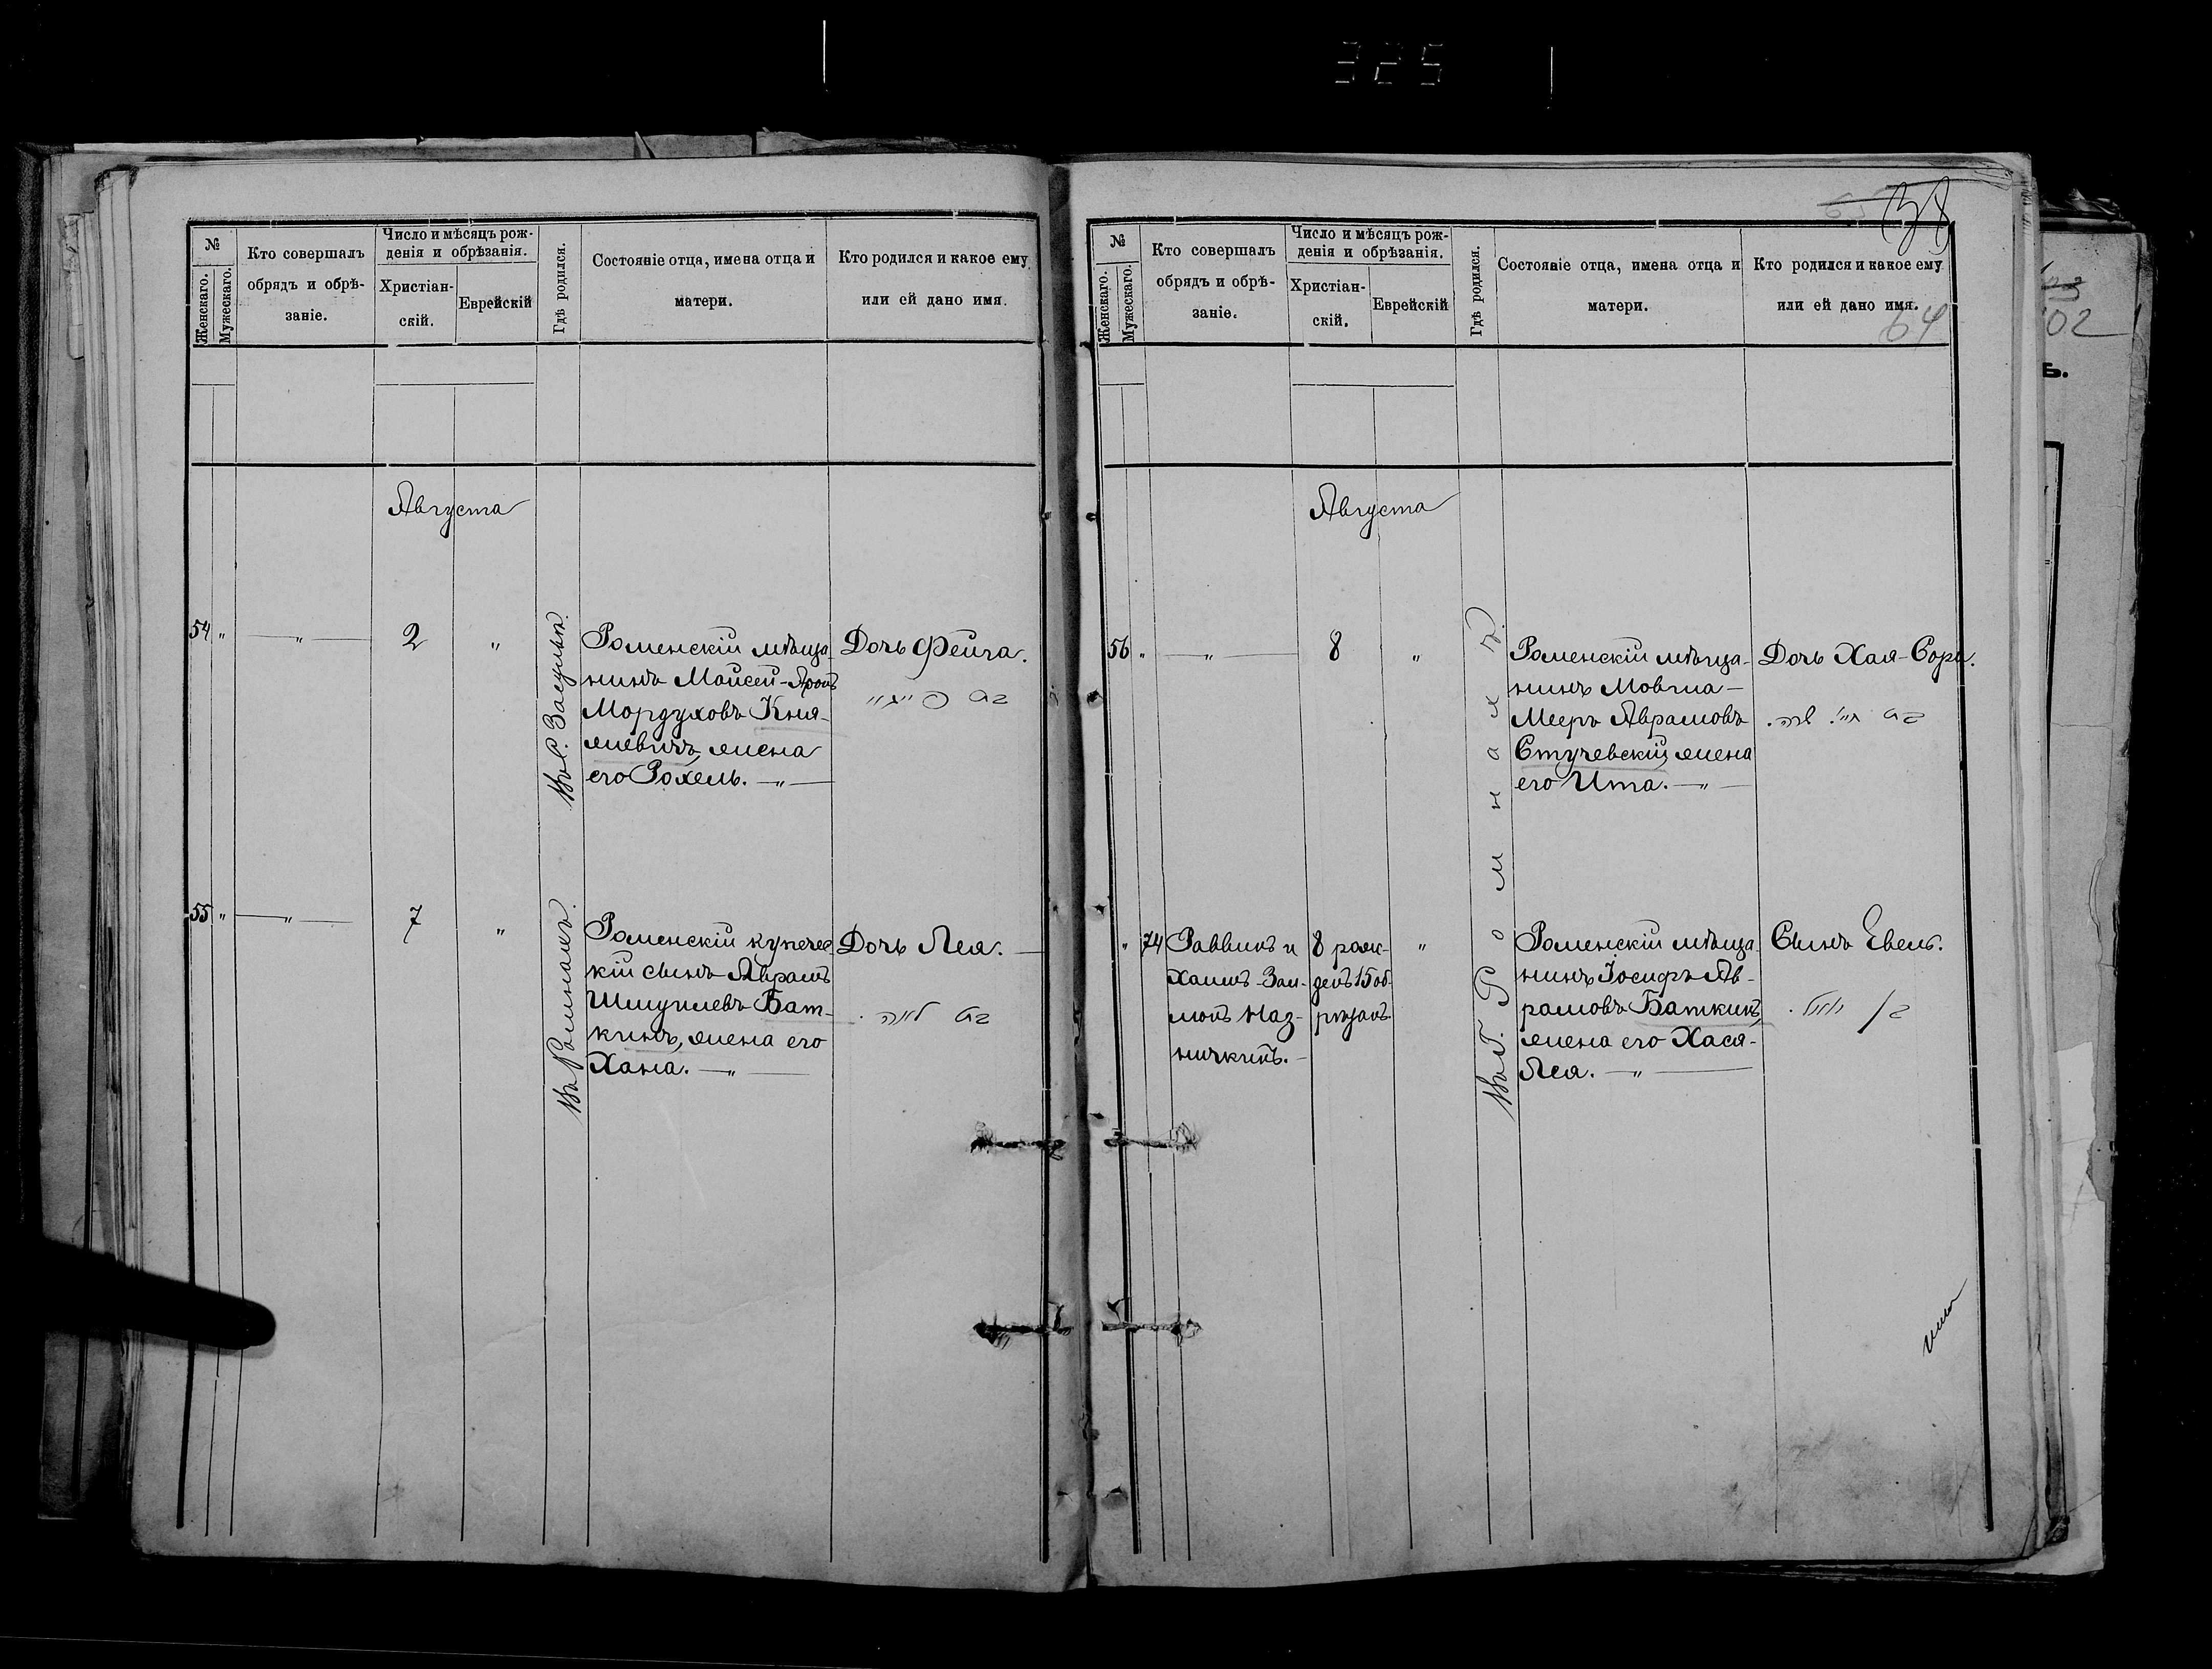 325
№
Женскаго.
Мужескаго.
Кто совершалъ
обрядъ и обрѣ-
заніе.
Число и мѣсяцъ рож-
денія и обрѣзанія.
Христіан-
скій.
Еврейскій
Гдѣ родился.
Состояніе отца, имена отца и
матери.
Кто родился и какое ему
или ей дано имя.
Августа
54 " — " — 2 "
Въ С. Засульи.
Роменскій мѣща-
нинъ Мойсей-Аронъ
Мордуховъ Кня-
жевичъ, жена
его Рохель. — " —
Дочь Фейга.
בת פייגא
55 " — " — 7 "
Въ Ромнахъ.
Роменскій купечес-
кій сынъ Абрамъ
Шмуилевъ Бат-
кинъ, жена его
Хана. — " —
Дочь Лея. —
בת לאה .
38
64
№
Женскаго.
Мужескаго.
Кто совершалъ
обрядъ и обрѣ-
заніе.
Число и мѣсяцъ рож-
денія и обрѣзанія.
Христіан-
скій.
Еврейскій
Гдѣ родился.
Состояніе отца, имена отца и
матери.
Кто родился и какое ему
или ей дано имя.
Августа
Въ Г. Ромнахъ.
56 " — " — 8 "
Роменскій мѣща-
нинъ Мовша-
Мееръ Абрамовъ
Стучевскій, жена
его Ита. — " —
Дочь Хая-Сора.
בת חי' שרה.
" 74
Раввинъ и
Хаимъ-Зал-
монъ Маз-
ничкинъ. —
8 рож-
денъ 15 об-
рѣзанъ
"
Роменскій мѣща-
нинъ Іосифъ Аб-
рамовъ Баткинъ,
жена его Хася-
Лея. — " —
Сынъ Евель.
102
Б.